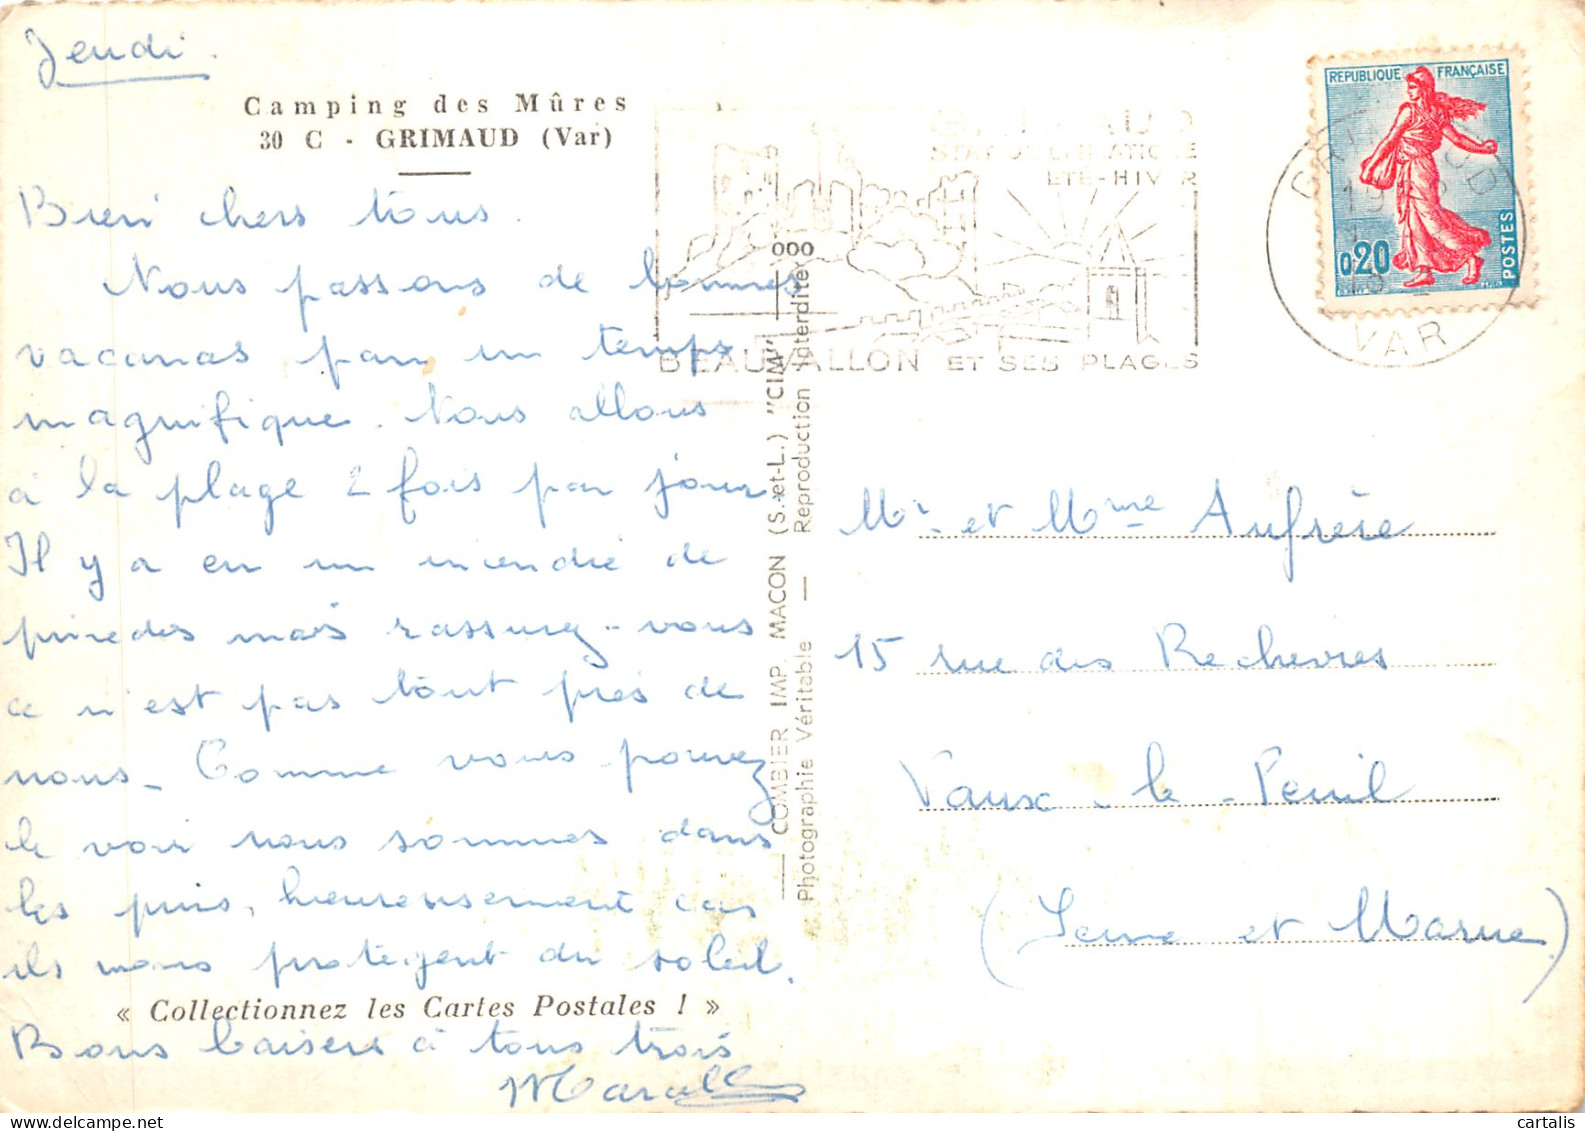 Jeudi.
Camping des Mûres
30 C - GRIMAUD (Var)
Bien chers tous.
Nous passons de bonnes
vacances par un temps
magnifique. Nous allons
à la plage 2 fois par jour.
Il y a eu un incendie de
pinèdes mais rassurez-vous
ce n'est pas tout près de
nous. Comme vous pouvez
le voir nous sommes dans
les pins, heureusement car
ils nous protègent du soleil.
« Collectionnez les Cartes Postales ! »
Bons baisers à tous trois
COMBIER IMP. MACON (S.-et-L.) "CIM"
Photographie Véritable — Reproduction Interdite
000
ETE-HIVER
BEAUVALLON ET SES PLAGES
REPUBLIQUE FRANÇAISE
0,20
POSTES
GRIMAUD
VAR
Mr et Mme Aufrère
15 rue des Rechèvres
Vaux-le-Penil
(Seine et Marne)
cartalis